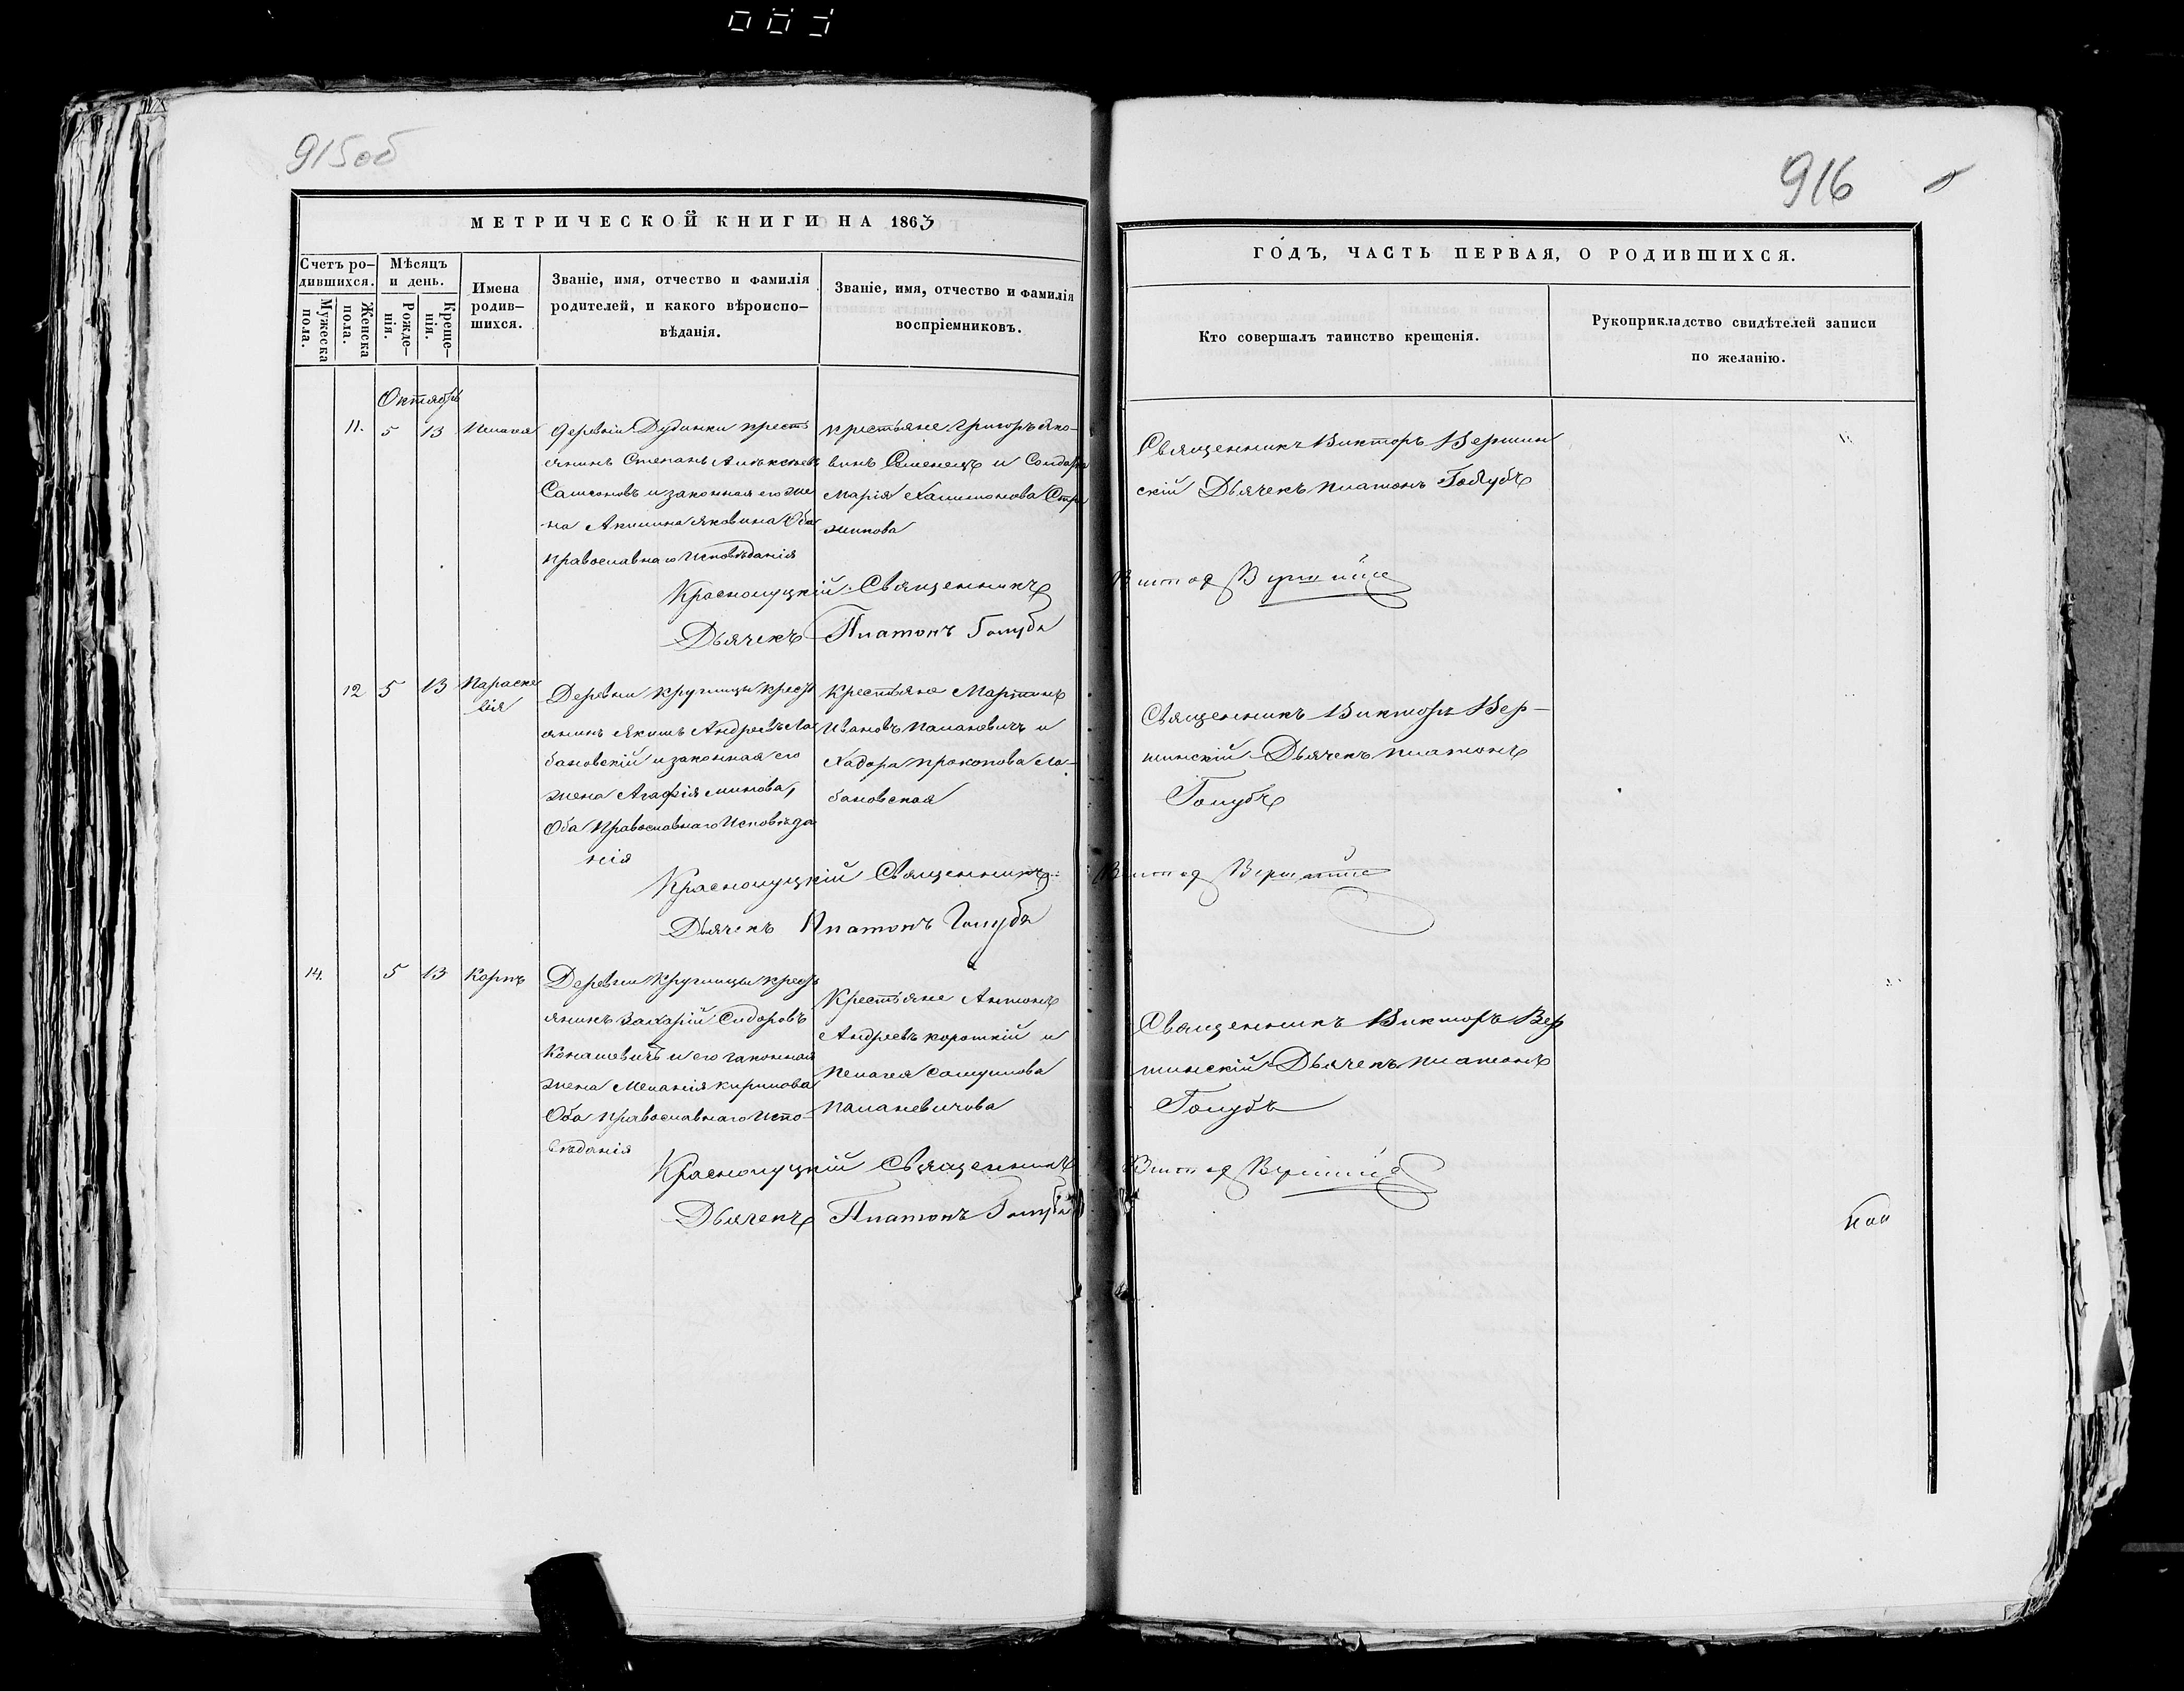 915об
МЕТРИЧЕСКОЙ КНИГИ НА 1863
Счетъ ро-
дившихся.
Мужеска
пола.
Женска
пола.
Мѣсяцъ
и день.
Рожде-
нія.
Креще-
нія.
Имена
родив-
шихся.
Званіе, имя, отчество и фамилія
родителей, и какого вѣроиспо-
вѣданія.
Званіе, имя, отчество и фамилія
воспріемниковъ.
Октябрь
11. 5 13 Пелагея
деревни Дубинки крестъ
янинъ Степанъ Алексѣевъ
Самсоновъ и законная его же
на Акилина Яковлева Оба
православнаго Исповѣданія
крестьяне Григоръ Яко-
Марія Хапимонова
Краснолуцкій Священникъ
Дьячекъ Платонъ Голубъ
12 5 13 Параске
вія
Деревни Круглицы крестъ
янинъ Якимъ Андреевъ Ло
бановскій и законная его
жена Агафія минова,
Оба Православнаго Исповѣда
нія
Крестьяне Мартинъ
Ивановъ Паланевичъ и
Хадора прокопова Ло-
бановская
Краснолуцкій Священникъ
Дьячекъ Платонъ Голубъ
14. 5 13 Карпъ
Деревни Круглицы крестъ
янинъ Захарій Сидоровъ
Конашевичъ и его законная
жена Меланія кирилова
Оба Православнаго Испо-
вѣданія
Крестьяне Антонъ
Андреевъ короткій и
Пелагея самуилова
паланевичова
Краснолуцкій Священникъ
Дьячекъ Платонъ Голубъ
916
ГОДЪ, ЧАСТЬ ПЕРВАЯ, О РОДИВШИХСЯ.
Кто совершалъ таинство крещенія.
Рукоприкладство свидѣтелей записи
по желанію.
Священникъ Викторъ Вершин
скій Дьячекъ платонъ Голубъ
Священникъ Викторъ Вер-
шинскій Дьячекъ платонъ
Голубъ
Священникъ Викторъ Вер
шинскій Дьячекъ платонъ
Голубъ